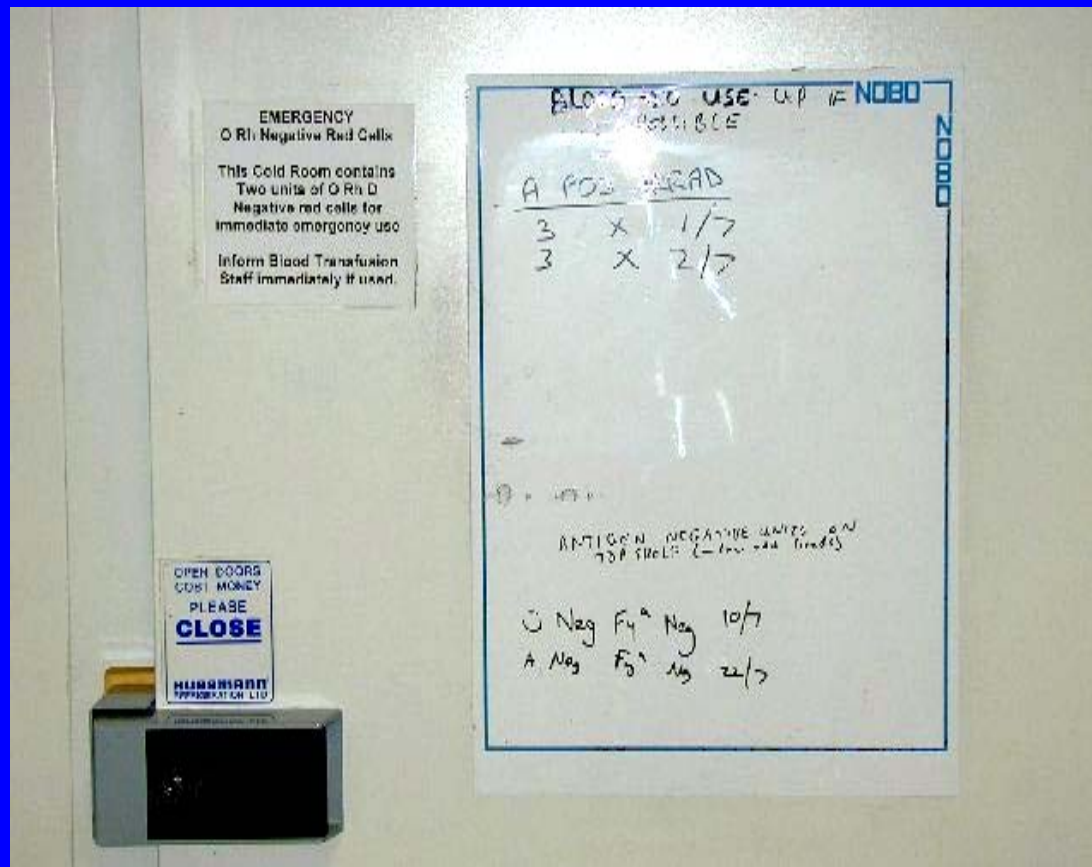 EMERGENCY
O Rh Negative Red Cells
This Cold Room contains
Two units of O Rh D
Negative red cells for
immediate emergency use
Inform Blood Transfusion
Staff immediately if used.
OPEN DOORS
COST MONEY
PLEASE
CLOSE
HUSSMANN
REFRIGERATION LTD
NOBO
NOBO
BLOOD TO USE UP IF
POSSIBLE
A POS
3 X 1/7
3 X 2/7
ANTIGEN NEGATIVE UNITS ON
TOP SHELF
Neg Fyª Neg 10/7
A Neg Fyª Ng 22/7